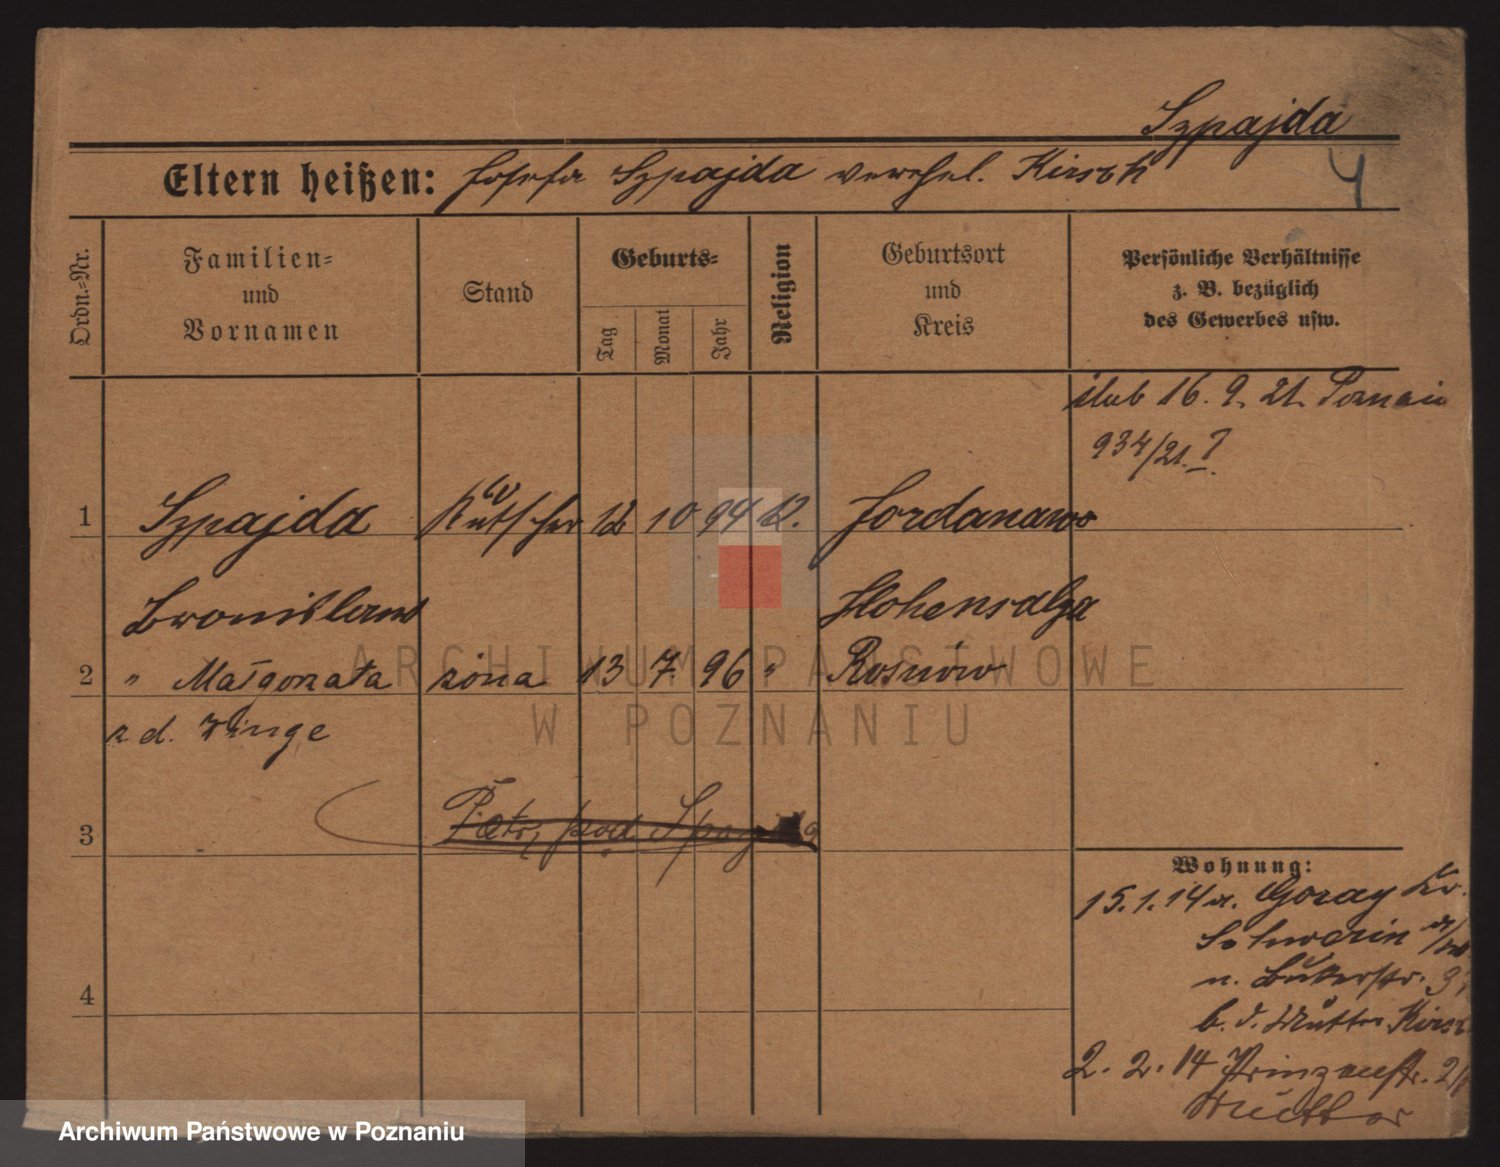 Szpajda
4
Eltern heißen: Josefa Szpajda verehel. Kirsch
Ordn.-Nr.
Familien-
und
Vornamen
Stand
Geburts-
Tag
Monat
Jahr
Religion
Geburtsort
und
Kreis
Persönliche Verhältnisse
z. B. bezüglich
des Gewerbes usw.
ślub 16. 9. 21. Poznań
934/21.
1 Szpajda Kutscher 12 10 94 k. Jordanowo
Bronislaus Hohensalza
2 " Małgorzata żona 13 7. 96 " Rosnowo
z d. Winge
3
4
Wohnung:
15.1.14 v. Goray Kr.
Schwerin a/W
n. Bukerstr.
b. d. Mutter Kirsch
2. 2. 14 Prinzenstr.
Mutter
ARCHIWUM PAŃSTWOWE
W POZNANIU
Archiwum Państwowe w Poznaniu